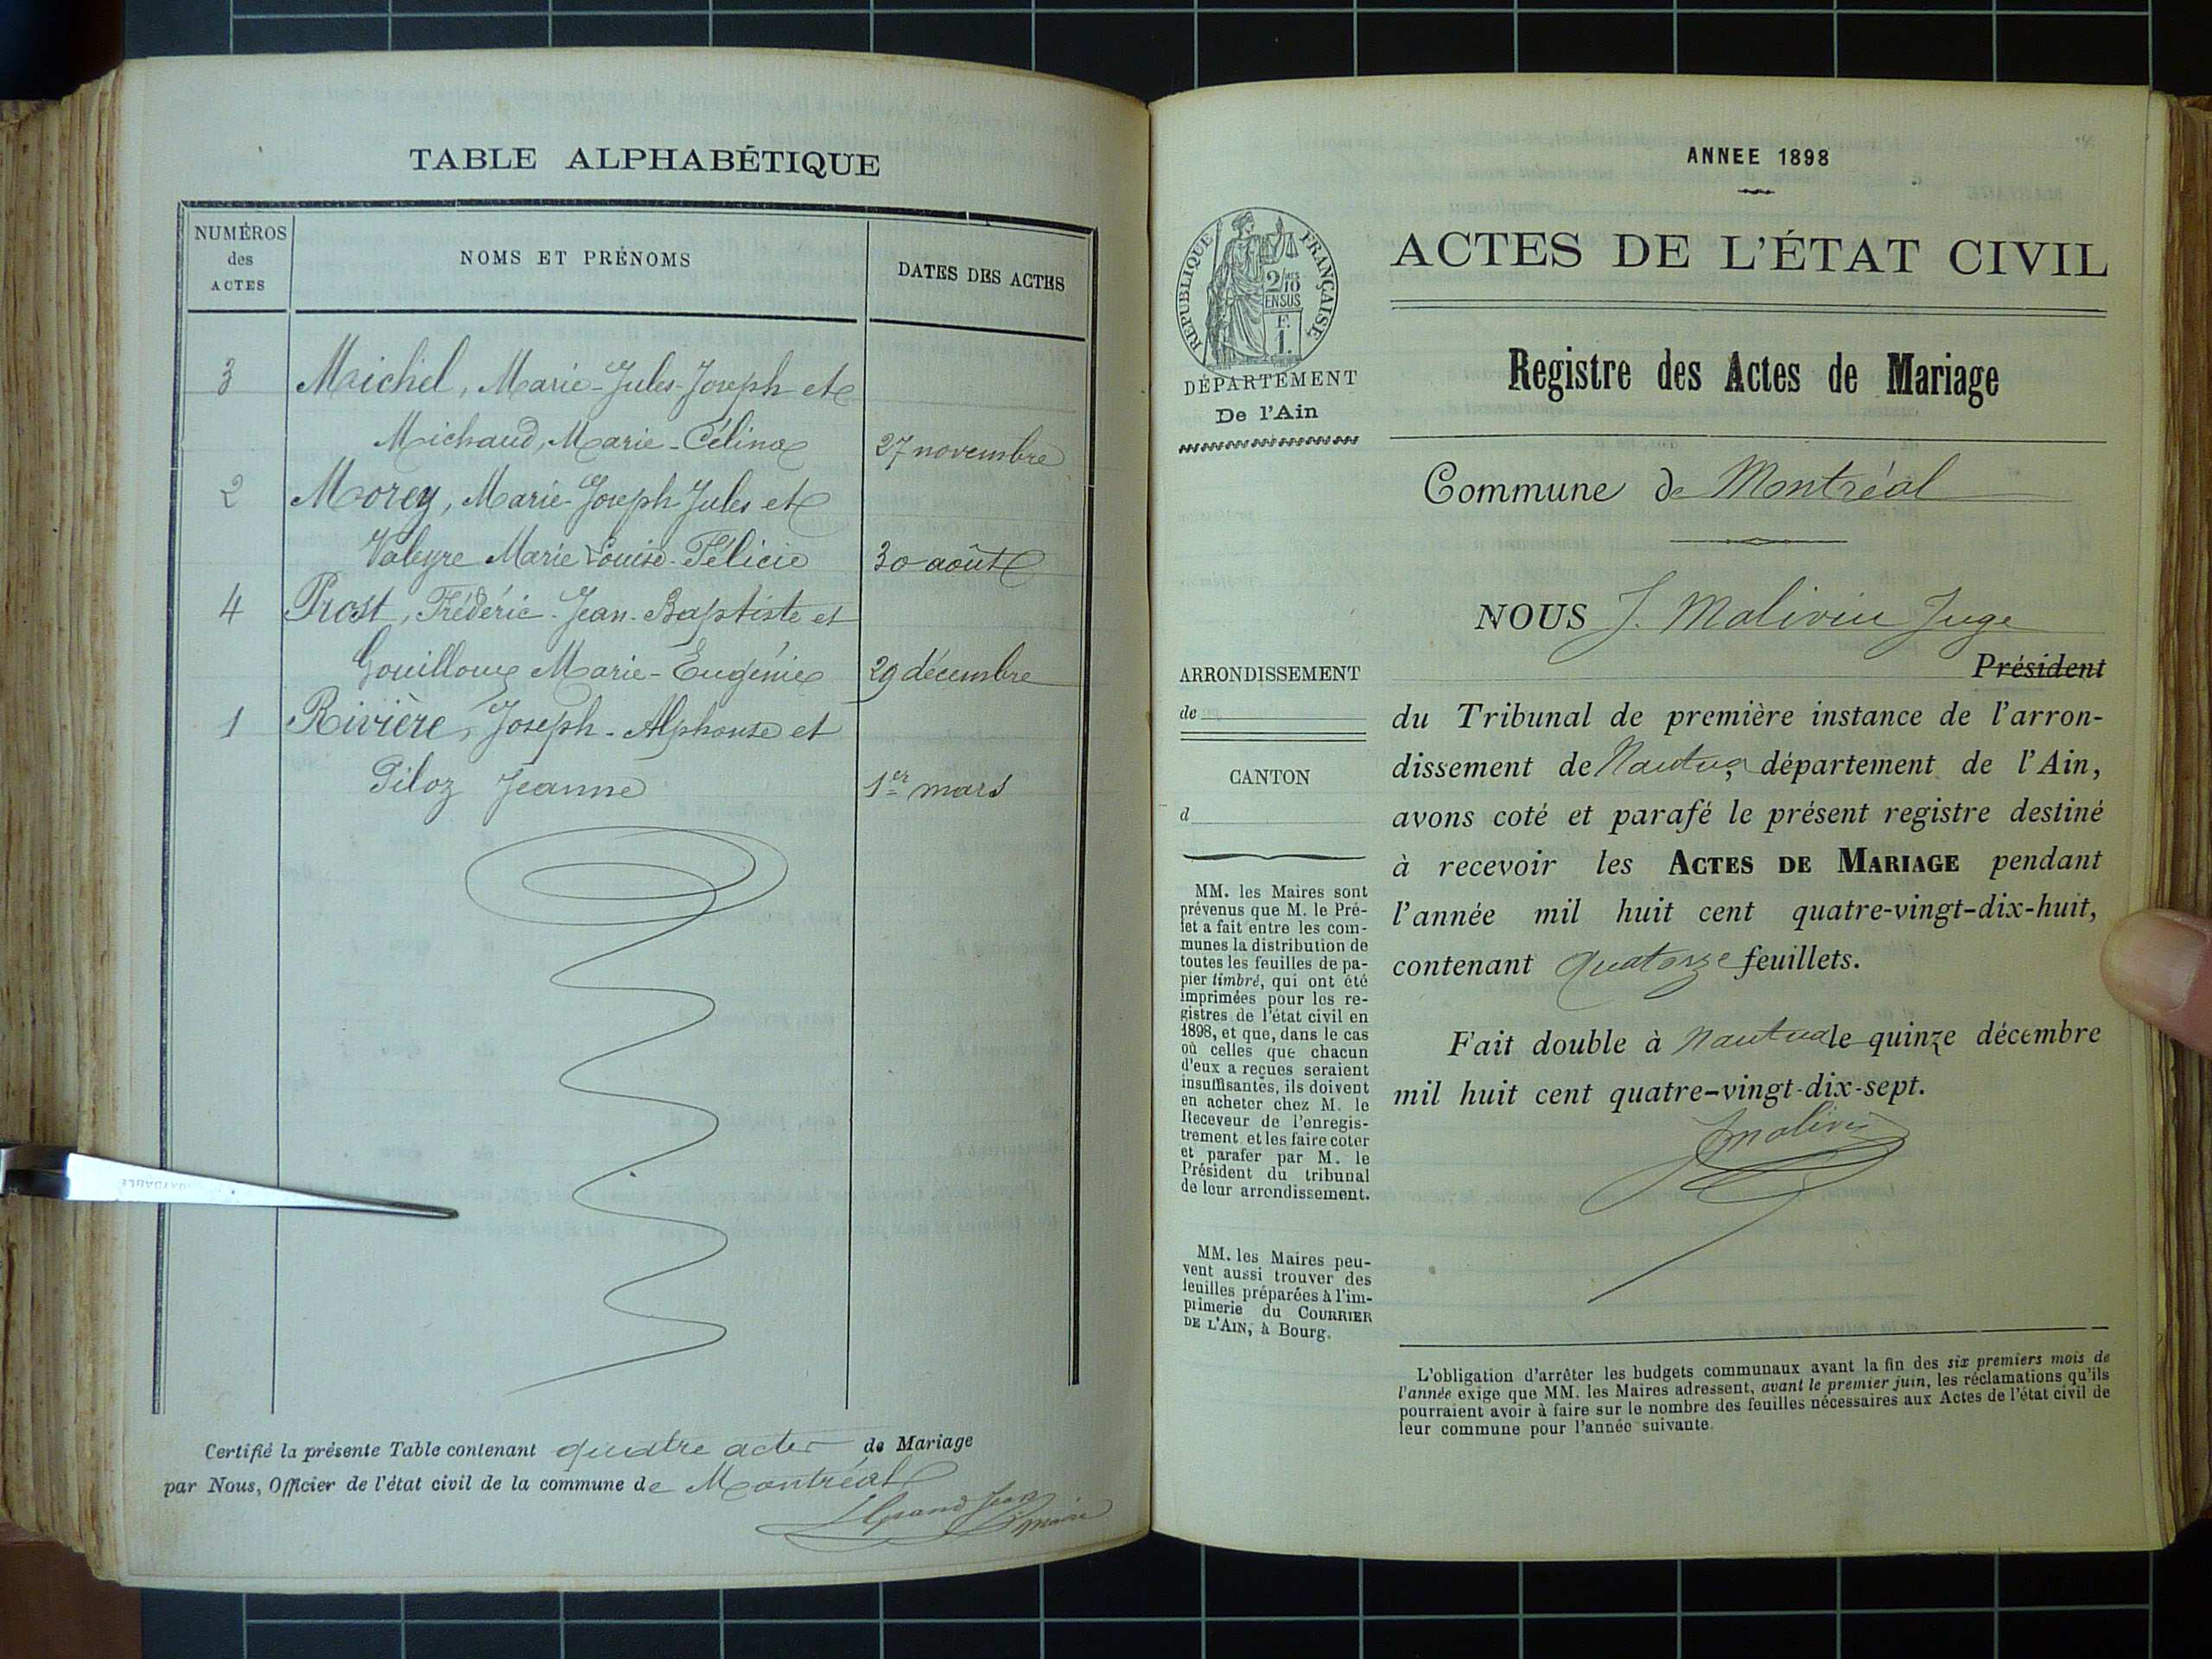 TABLE ALPHABÉTIQUE
NUMÉROS
des
ACTES
NOMS ET PRÉNOMS
DATES DES ACTES
3 Michel, Marie-Jules-Joseph et
Michaud, Marie-Célina 27 novembre
2 Morey, Marie-Joseph-Jules et
Valeyre Marie Louise-Félicie 30 août
4 Prost, Frédéric-Jean-Baptiste et
Gouilloux Marie-Eugénie 29 décembre
1 Rivière, Joseph-Alphonse et
Piloz Jeanne 1er mars
Certifié la présente Table contenant quatre actes de Mariage
par Nous, Officier de l'état civil de la commune de Montréal
Grand Jean
maire
ANNEE 1898
REPUBLIQUE FRANÇAISE
2/10
EN SUS
F.
1.
DÉPARTEMENT
De l'Ain
ARRONDISSEMENT
de
CANTON
d
MM. les Maires sont
prévenus que M. le Pré-
fet a fait entre les com-
munes la distribution de
toutes les feuilles de pa-
pier timbré, qui ont été
imprimées pour les re-
gistres de l'état civil en
1898, et que, dans le cas
où celles que chacun
d'eux a reçues seraient
insuffisantes, ils doivent
en acheter chez M. le
Receveur de l'enregis-
trement et les faire coter
et parafer par M. le
Président du tribunal
de leur arrondissement.
MM. les Maires peu-
vent aussi trouver des
feuilles préparées à l'im-
primerie du COURRIER
DE L'AIN, à Bourg.
ACTES DE L'ÉTAT CIVIL
Registre des Actes de Mariage
Commune de Montréal
NOUS J. Molivin Juge
Président
du Tribunal de première instance de l'arron-
dissement de Nantua, département de l'Ain,
avons coté et parafé le présent registre destiné
à recevoir les ACTES DE MARIAGE pendant
l'année mil huit cent quatre-vingt-dix-huit,
contenant quatorze feuillets.
Fait double à Nantua le quinze décembre
mil huit cent quatre-vingt-dix-sept.
JMolivin
L'obligation d'arrêter les budgets communaux avant la fin des six premiers mois de
l'année exige que MM. les Maires adressent, avant le premier juin, les réclamations qu'ils
pourraient avoir à faire sur le nombre des feuilles nécessaires aux Actes de l'état civil de
leur commune pour l'année suivante.